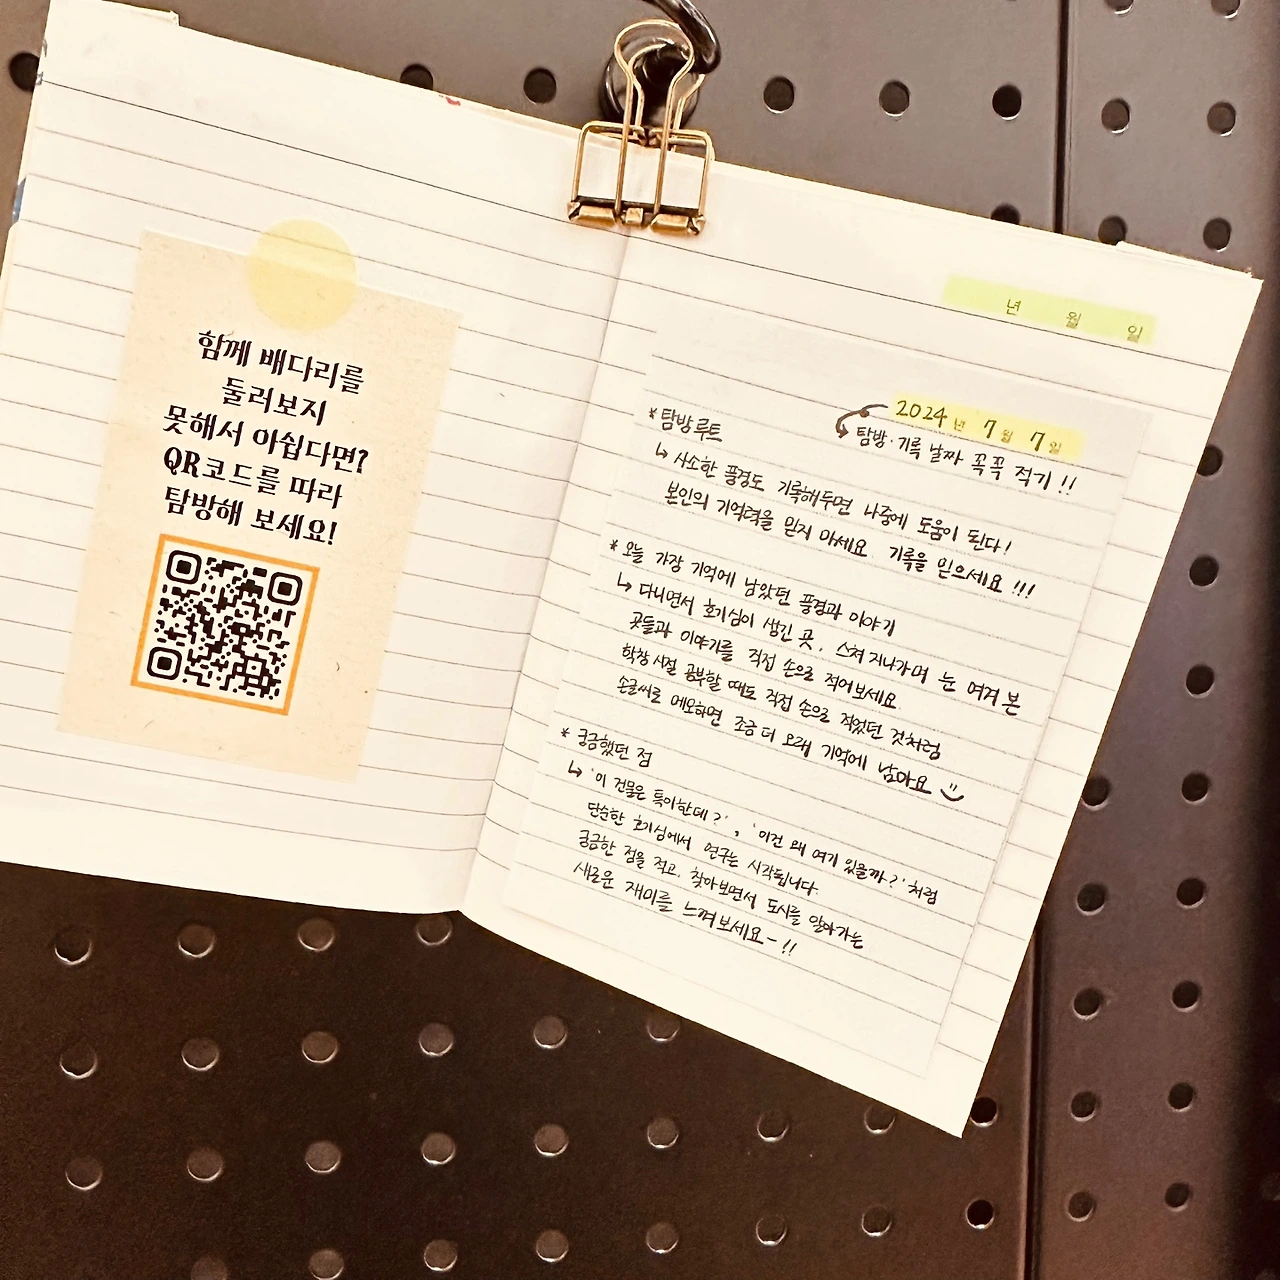 함께 배다리를
둘러보지
못해서 아쉽다면?
QR코드를 따라
탐방해 보세요!
년 월 일
2024년 7월 7일
탐방·기록 날짜 꼭꼭 적기!!
* 탐방루트
↳ 사소한 풍경도 기록해두면 나중에 도움이 된다!
본인의 기억력을 믿지 마세요. 기록을 믿으세요!!!
* 오늘 가장 기억에 남았던 풍경과 이야기
↳ 다니면서 호기심이 생긴 곳, 스쳐 지나가며 눈 여겨 본
곳들과 이야기를 직접 손으로 적어보세요.
학창시절 공부할 때도 직접 손으로 적었던 것처럼
손글씨로 메모하면 조금 더 오래 기억에 남아요
* 궁금했던 점
↳ '이 건물은 특이한데?', '이건 왜 여기 있을까?'처럼
단순한 호기심에서 연구는 시작됩니다.
궁금한 점을 적고, 찾아보면서 도시를 알아가는
새로운 재미를 느껴보세요-!!